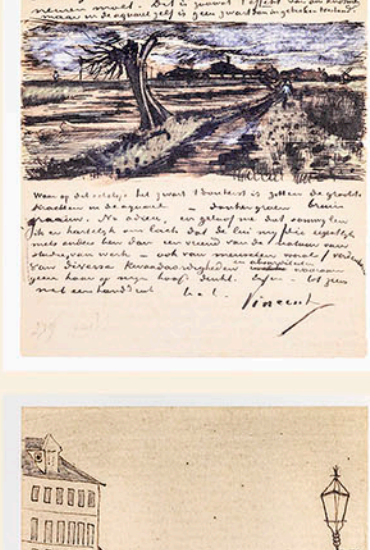 nemen moet. Dit is zoowat 't effekt van den knotwilg
maar in de aquarel zelf is geen zwart dan in gebroken toestand.
Waar op dit schetsje het zwart 't donkerst is zitten de grootste
krachten in de aquarel – donkergroen bruin
graauw. Nu adieu, en geloof me dat soms
ik er hartelijk om lach dat de lui mij (die eigentlijk
niets anders ben dan een vriend van de natuur van
studie, van werk – ook van menschen vooral) verdenken
van diverse kwaadaardigheden en absurditeiten waarvan
geen haar op mijn hoofd denkt. Enfin – tot ziens
met een handdruk t. à t.
Vincent